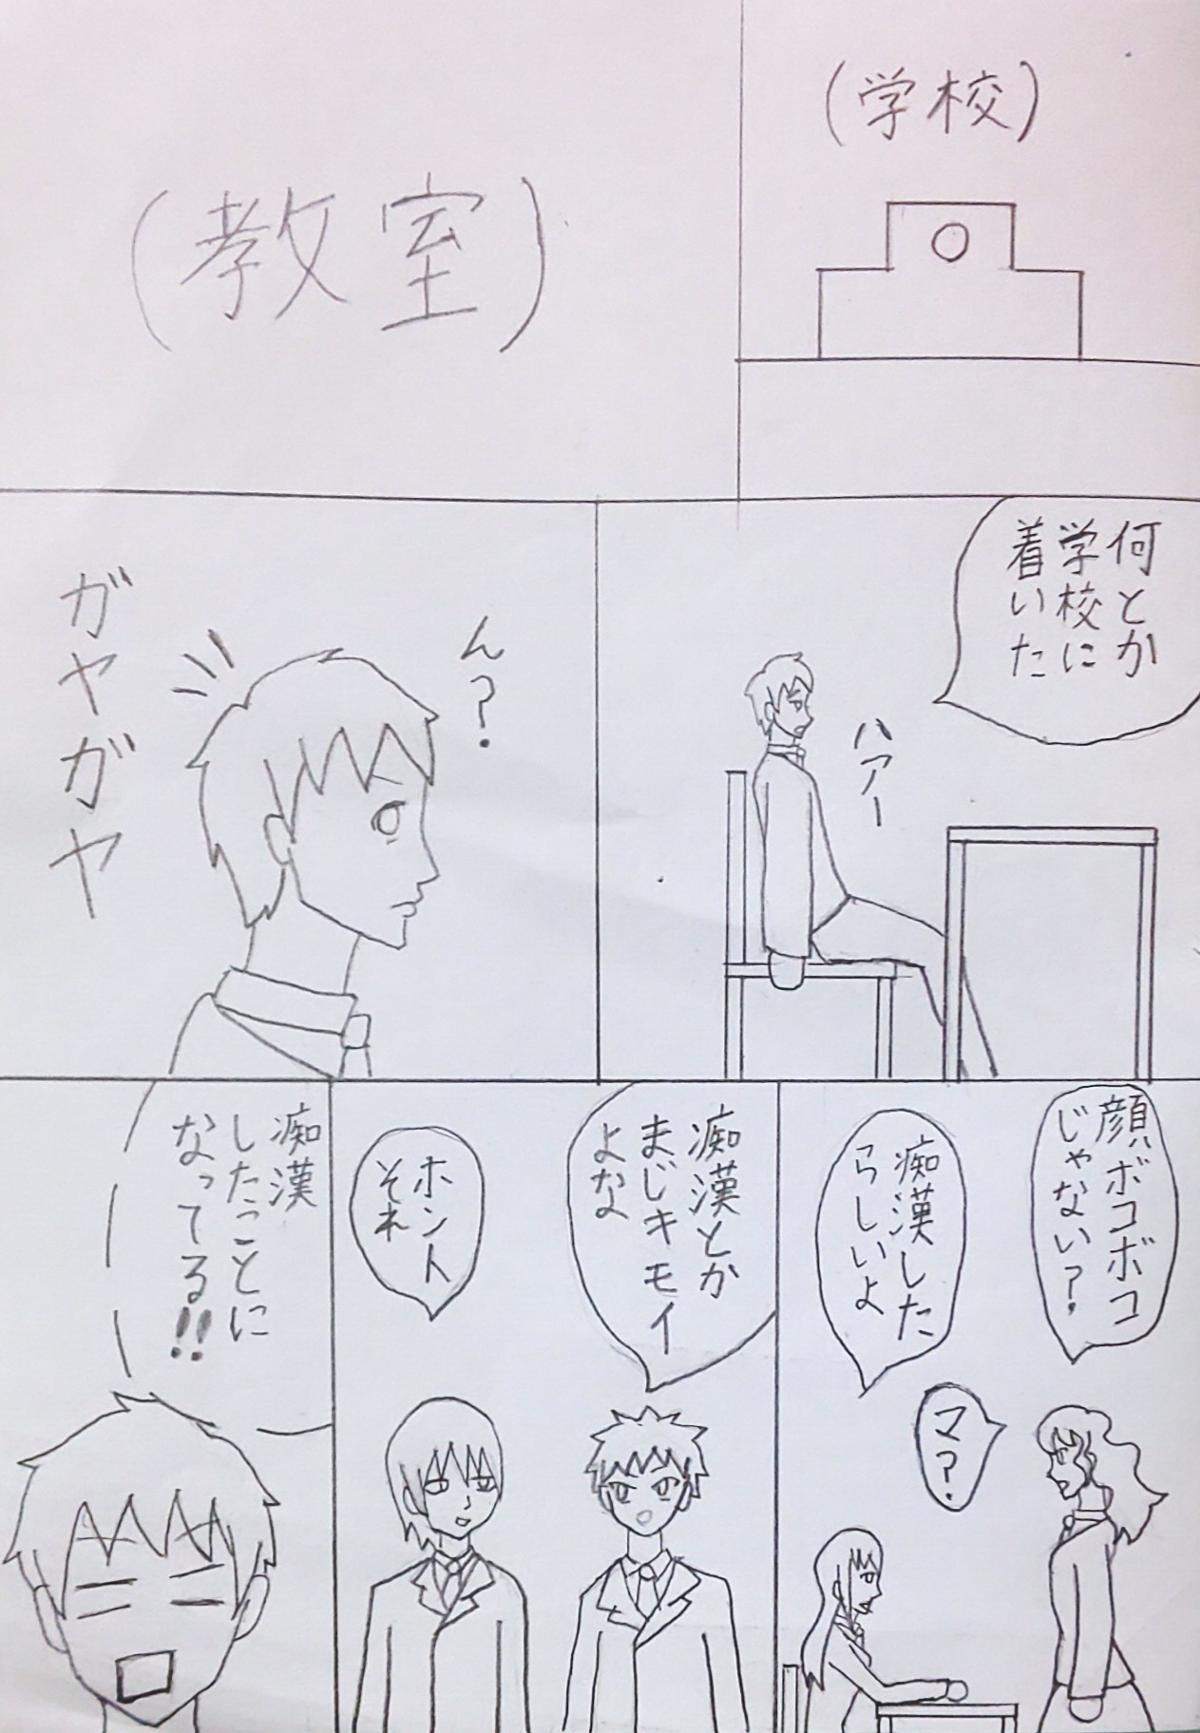 (学校)
(教室)
何とか
学校に
着いた
ハァー
ん?
ガヤガヤ
顔ボコボコ
じゃない?
痴漢した
らしいよ
マ?
痴漢とか
まじキモイ
よな
ホント
それ
痴漢
したことに
なってる!!